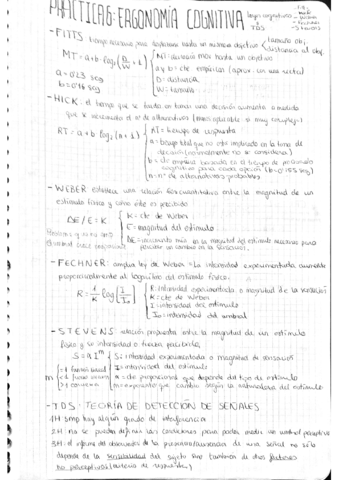 PRÁCTICA 6: ERGONOMÍA COGNITIVA
- FITTS tiempo necesario para desplazarse hasta un objetivo tamaño obj.
distancia al obj.
MT = a + b log2 (D/W + 1) MT = tiempo mov. hasta un objetivo
a y b = cte empíricas (aprox. con una recta)
a = 0'23 seg D = distancia
b = 0'16 seg W = tamaño
- HICK: el tiempo que se tarda en tomar una decisión aumenta a medida
que se incrementa el nº de alternativas
RT = a + b log2 (n + 1) RT = tiempo de respuesta
a = tiempo total que no está implicado en la toma de
decisión (normalmente no se considera)
b = cte empírica basada en el tiempo de procesado
cognitivo para cada opción (b = 0'155 seg)
n = nº de alternativas probables
- WEBER establece una relación cuantitativa entre la magnitud de un
estímulo físico y cómo éste es percibido
ΔE / E = K K = cte de Weber
E = magnitud del estímulo
ΔE = incremento más en la magnitud del estímulo necesario para
percibir un cambio en la sensación
- FECHNER: amplía ley de Weber. La intensidad experimentada aumenta
proporcionalmente al logaritmo del estímulo físico:
R = 1/K log (I/Io) R = intensidad experimentada o magnitud de la sensación
K = cte de Weber
I = intensidad del estímulo
Io = intensidad del umbral
- STEVENS: relación propuesta entre la magnitud de un estímulo
físico y se intensidad o fuerza percibida,
S = a I^m S = intensidad experimentada o magnitud de sensación
I = intensidad del estímulo
a = cte de proporción que depende del tipo de estímulo
m = exponente que cambia según la naturaleza del estímulo
- TDS: TEORÍA DE DETECCIÓN DE SEÑALES
1H: smp hay algún grado de interferencia
2H: no se pueden definir las condiciones para poder medir un umbral perceptivo
3H: el informe del observador de la presencia/ausencia de una señal no sólo
depende de la sensibilidad del sujeto sino también de otros factores
no perceptivos (criterio de respuesta)